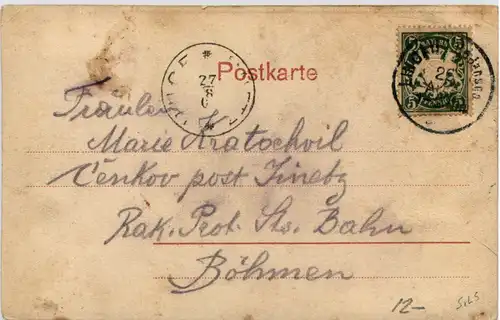 Postkarte
27
8
25
BAYERN
5 5
5 PFENNIG 5
Fräulein
Marie Kratochvil
Čenkov post Jinetz
Rak. Prot. Sts. Bahn
Böhmen
12-